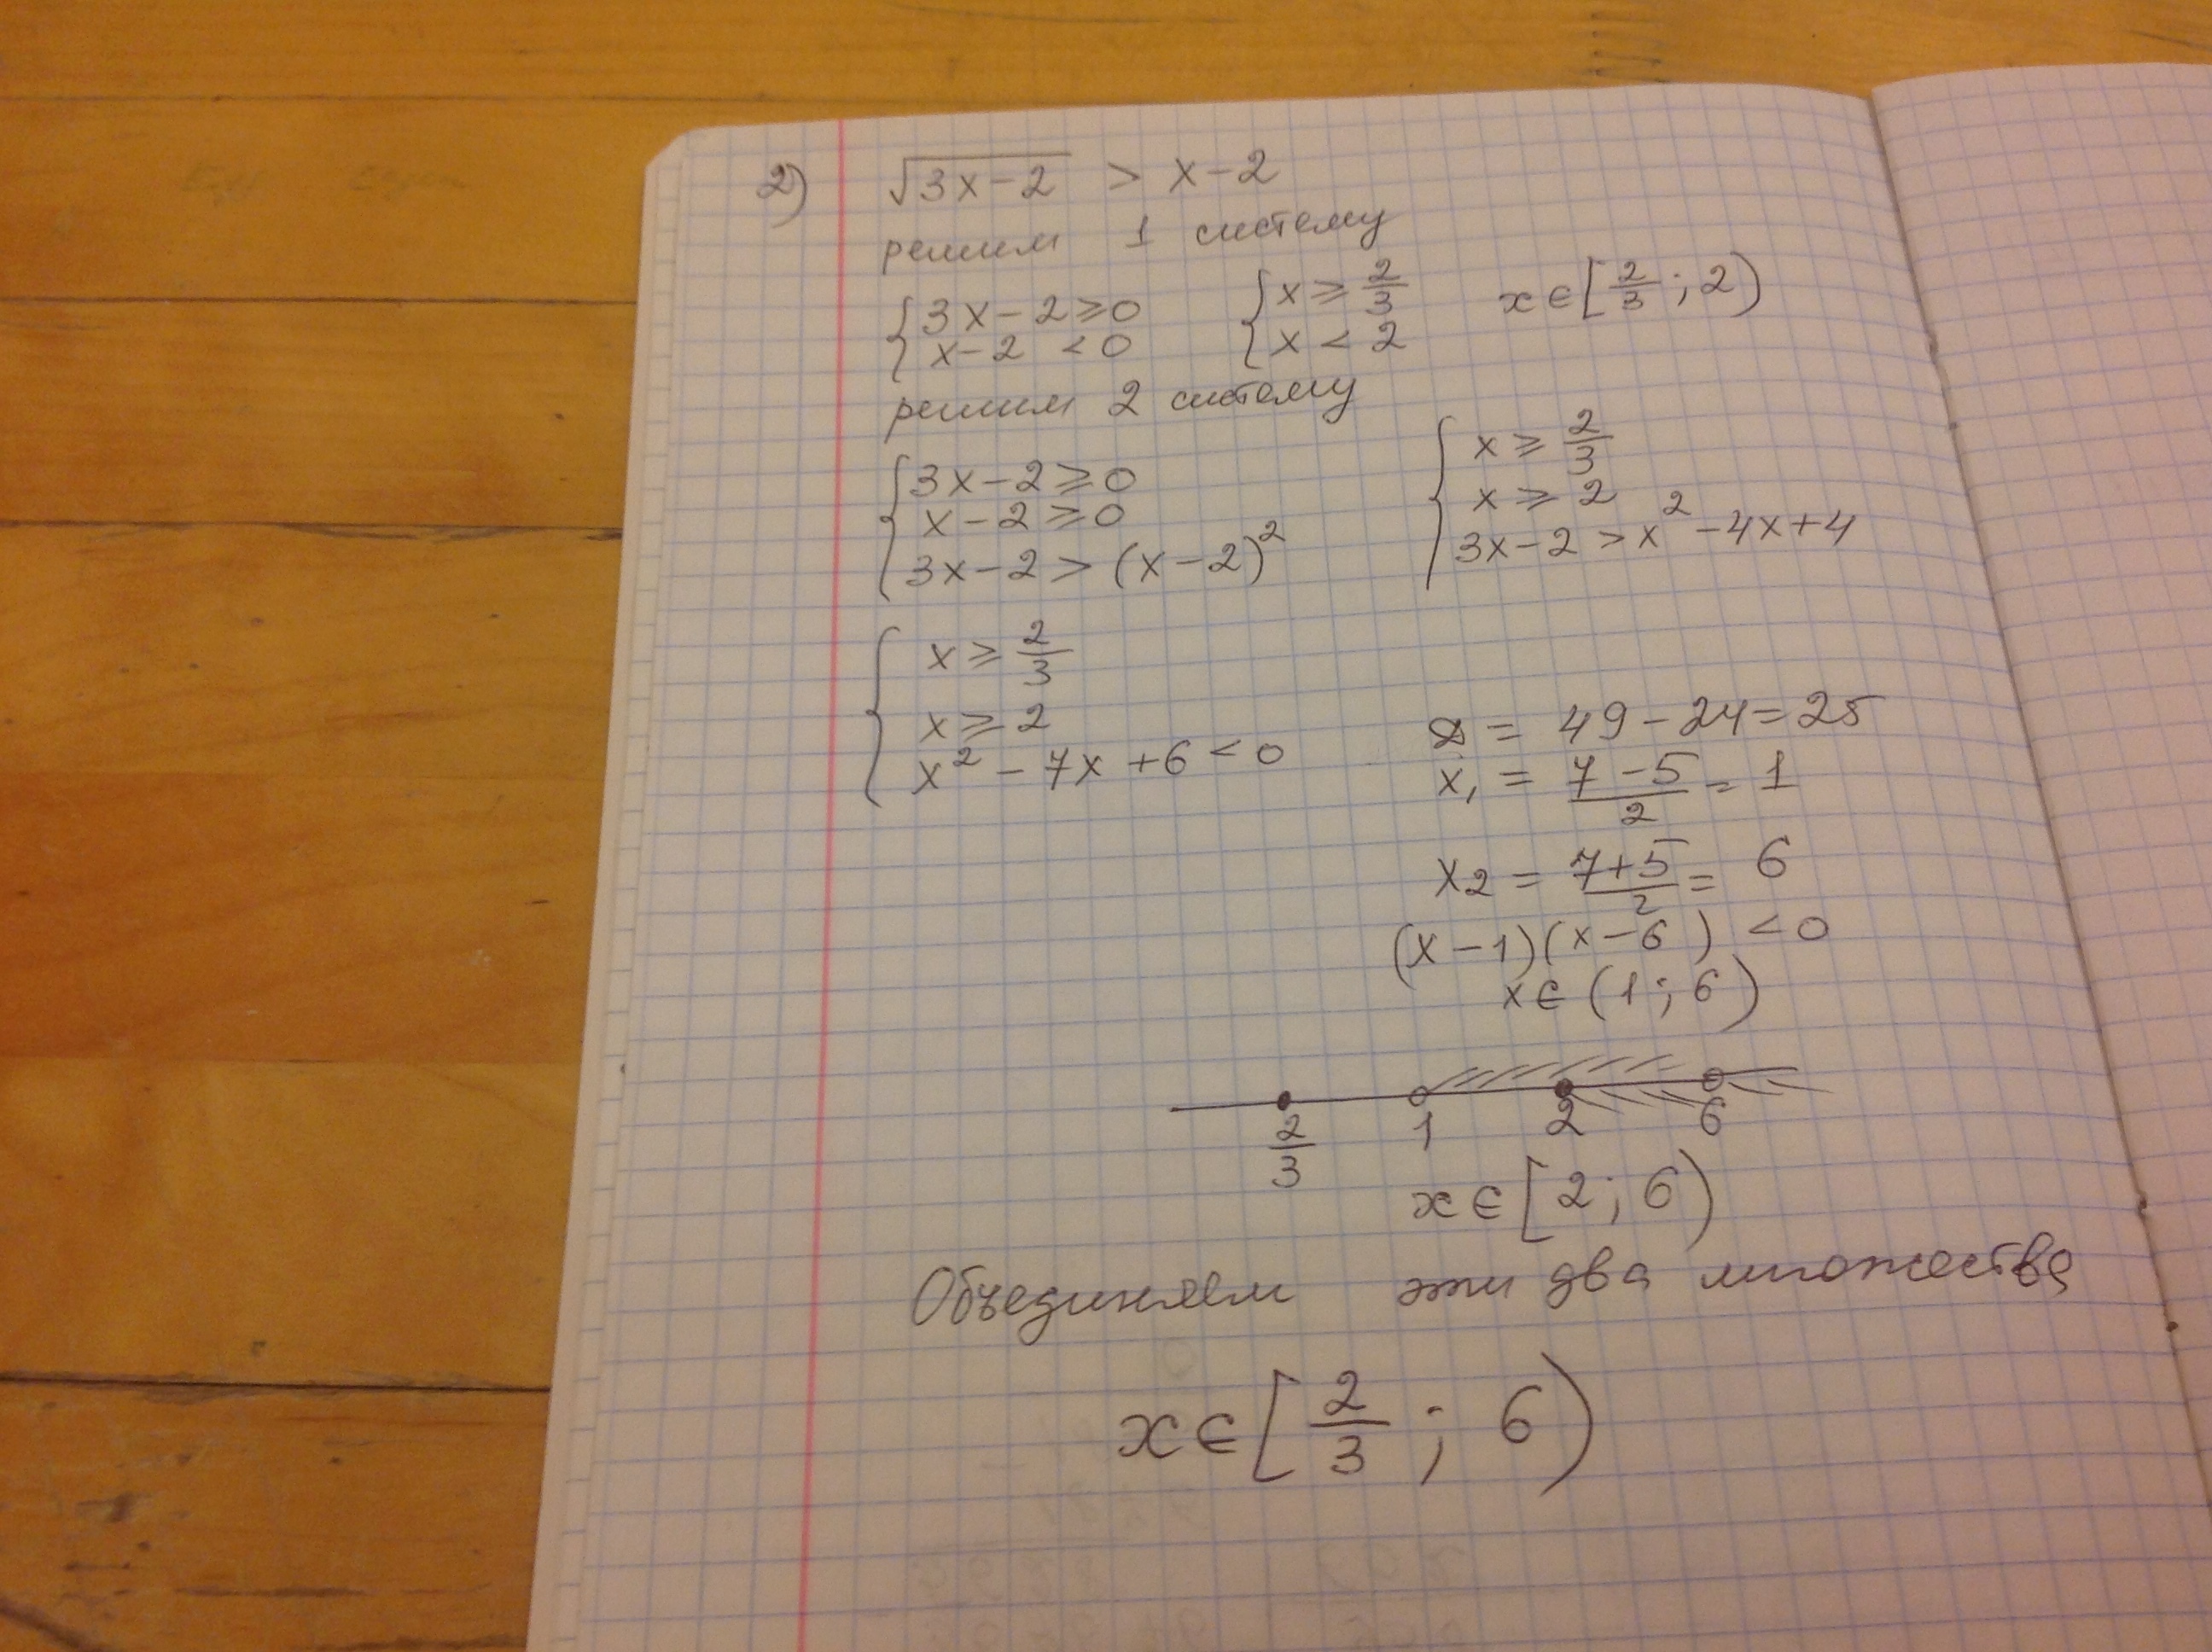 2) √3x-2 > x-2
решим 1 систему
{3x-2≥0 {x≥2/3 x∈[2/3;2)
x-2 <0 x<2
решим 2 систему
{3x-2≥0 {x≥2/3
x-2≥0 x≥2
3x-2>(x-2)² 3x-2>x²-4x+4
{x≥2/3
x≥2
x²-7x+6<0
D = 49-24=25
x₁ = 7-5/2 = 1
x₂ = 7+5/2 = 6
(x-1)(x-6) <0
x∈(1;6)
2/3 1 2 6
x∈[2;6)
Объединяем эти два множества
x∈[2/3; 6)